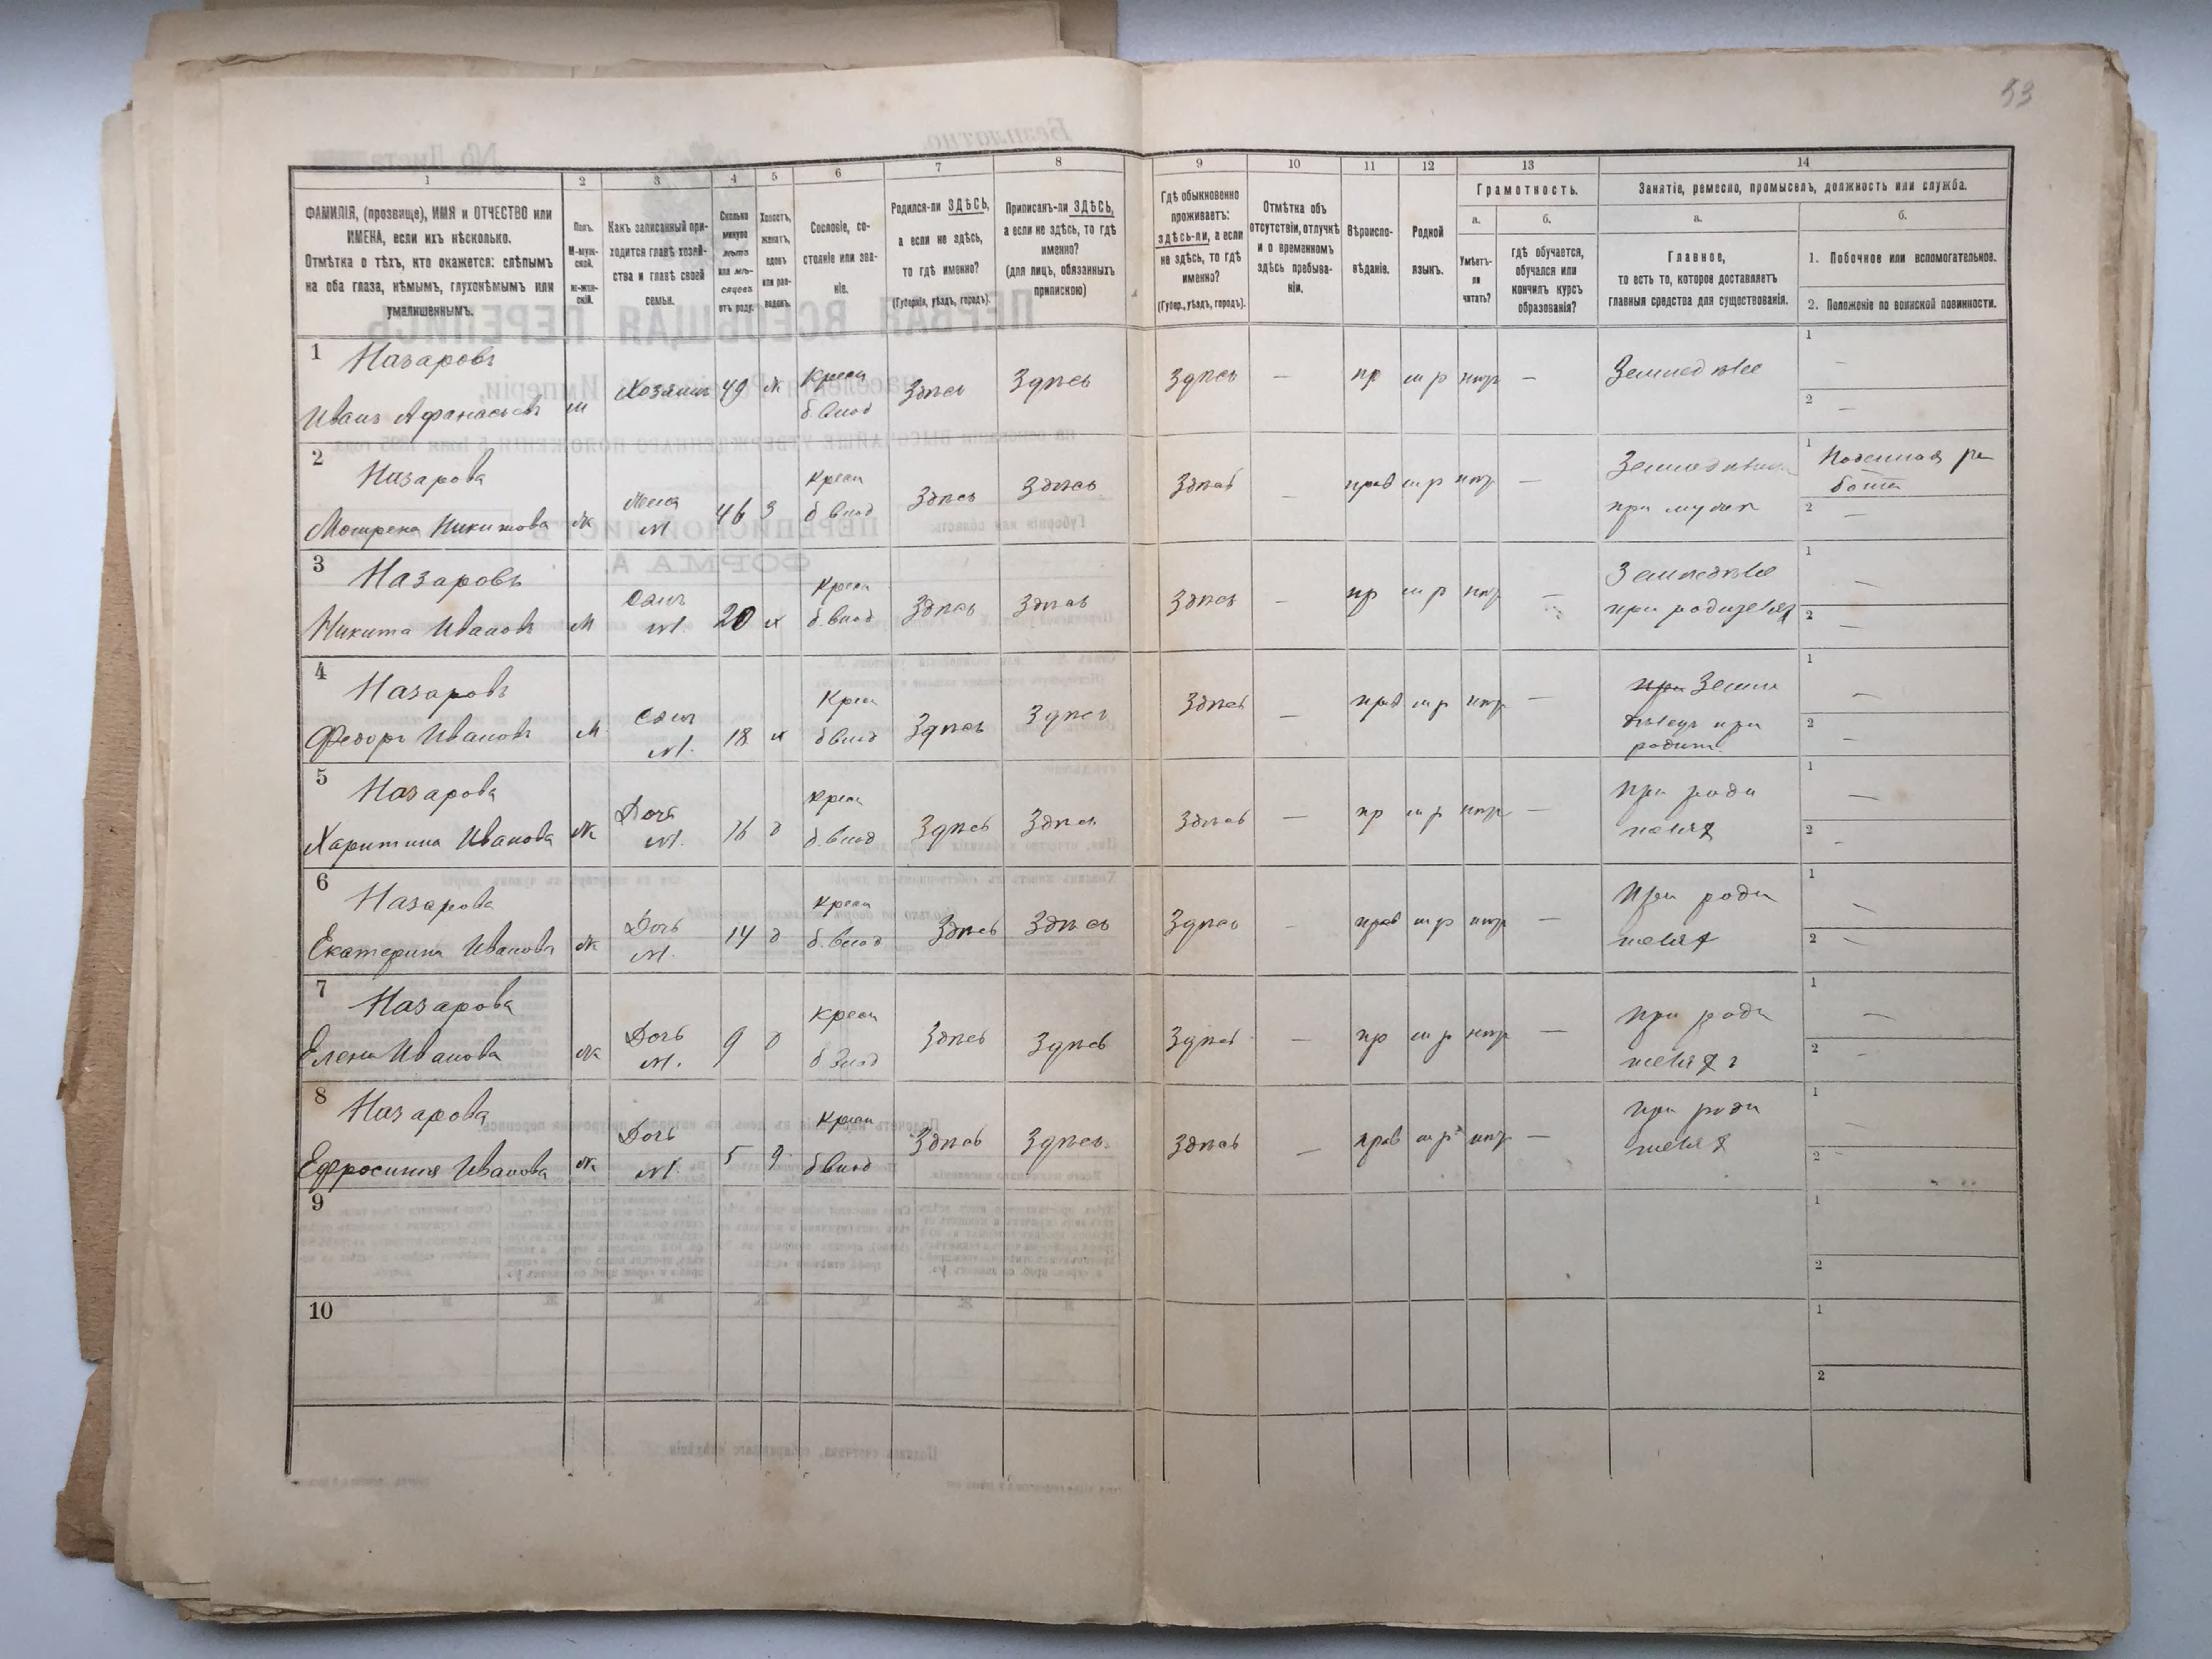 53
1
2
3
4
5
6
7
8
9
10
11
12
13
14
ФАМИЛІЯ, (прозвище), ИМЯ и ОТЧЕСТВО или
ИМЕНА, если ихъ нѣсколько.
Отмѣтка о тѣхъ, кто окажется: слѣпымъ
на оба глаза, нѣмымъ, глухонѣмымъ или
умалишеннымъ.
Полъ.
М-муж-
ской.
ж-жен-
скій.
Какъ записанный при-
ходится главѣ хозяй-
ства и главѣ своей
семьи.
Сколько
минуло
лѣтъ
или мѣ-
сяцевъ
отъ роду.
Холостъ,
женатъ,
вдовъ
или раз-
веденъ.
Сословіе, со-
стояніе или зва-
ніе.
Родился-ли ЗДѢСЬ,
а если не здѣсь,
то гдѣ именно?
(Губернія, уѣздъ, городъ).
Приписанъ-ли ЗДѢСЬ,
а если не здѣсь, то гдѣ
именно?
(для лицъ, обязанныхъ
припискою)
Гдѣ обыкновенно
проживаетъ:
здѣсь-ли, а если
не здѣсь, то гдѣ
именно?
(Губер., уѣздъ, городъ).
Отмѣтка объ
отсутствіи, отлучкѣ
и о временномъ
здѣсь пребыва-
ніи.
Вѣроиспо-
вѣданіе.
Родной
языкъ.
Грамотность.
а.
Умѣетъ-
ли
читать?
б.
гдѣ обучается,
обучался или
кончилъ курсъ
образованія?
Занятіе, ремесло, промыселъ, должность или служба.
а.
Главное,
то есть то, которое доставляетъ
главныя средства для существованія.
б.
1. Побочное или вспомогательное.
2. Положеніе по воинской повинности.
1 Назаровъ
Иванъ Афанасьевъ м Хозяинъ 49 ж Крест б.влад Здѣсь Здѣсь Здѣсь — пр м р нтр — Земледѣліе 1 — 2 —
2 Назарова
Мотрена Никитова ж Жена м 46 З крест б влад Здѣсь Здѣсь Здѣсь — прав м р нтр 1 Поденная ра
бота
при мужѣ 2 —
3 Назаровъ
Никита Ивановъ м Сынъ м. 20 х Крест б.влад Здѣсь Здѣсь Здѣсь — пр м р нтр — Земледѣліе 1 —
при родителях 2 —
4 Назаровъ
Федоръ Ивановъ м Сынъ м. 18 х Крест б влад Здѣсь Здѣсь Здѣсь — прав м р нтр — при Земле 1 —
при 2 —
родит.
5 Назарова
Харитина Иванова ж Дочь м. 16 д крест б.влад Здѣсь Здѣсь Здѣсь — пр м р нтр — При роди 1 —
телях 2 -
6 Назарова
Екатерина Иванова ж Дочь м. 14 д крест б.влад Здѣсь Здѣсь Здѣсь — прав м р нтр — При роди 1 —
телях 2 —
7 Назарова
Елена Иванова ж Дочь м. 9 д крест б влад Здѣсь Здѣсь Здѣсь — пр м р нтр — при роди 1 —
телях 2 —
8 Назарова
Ефросиния Иванова ж Дочь м. 5 д крест б влад Здѣсь Здѣсь Здѣсь — прав м р нтр — при роди 1 —
телях 2 —
9
1
2
10
1
2